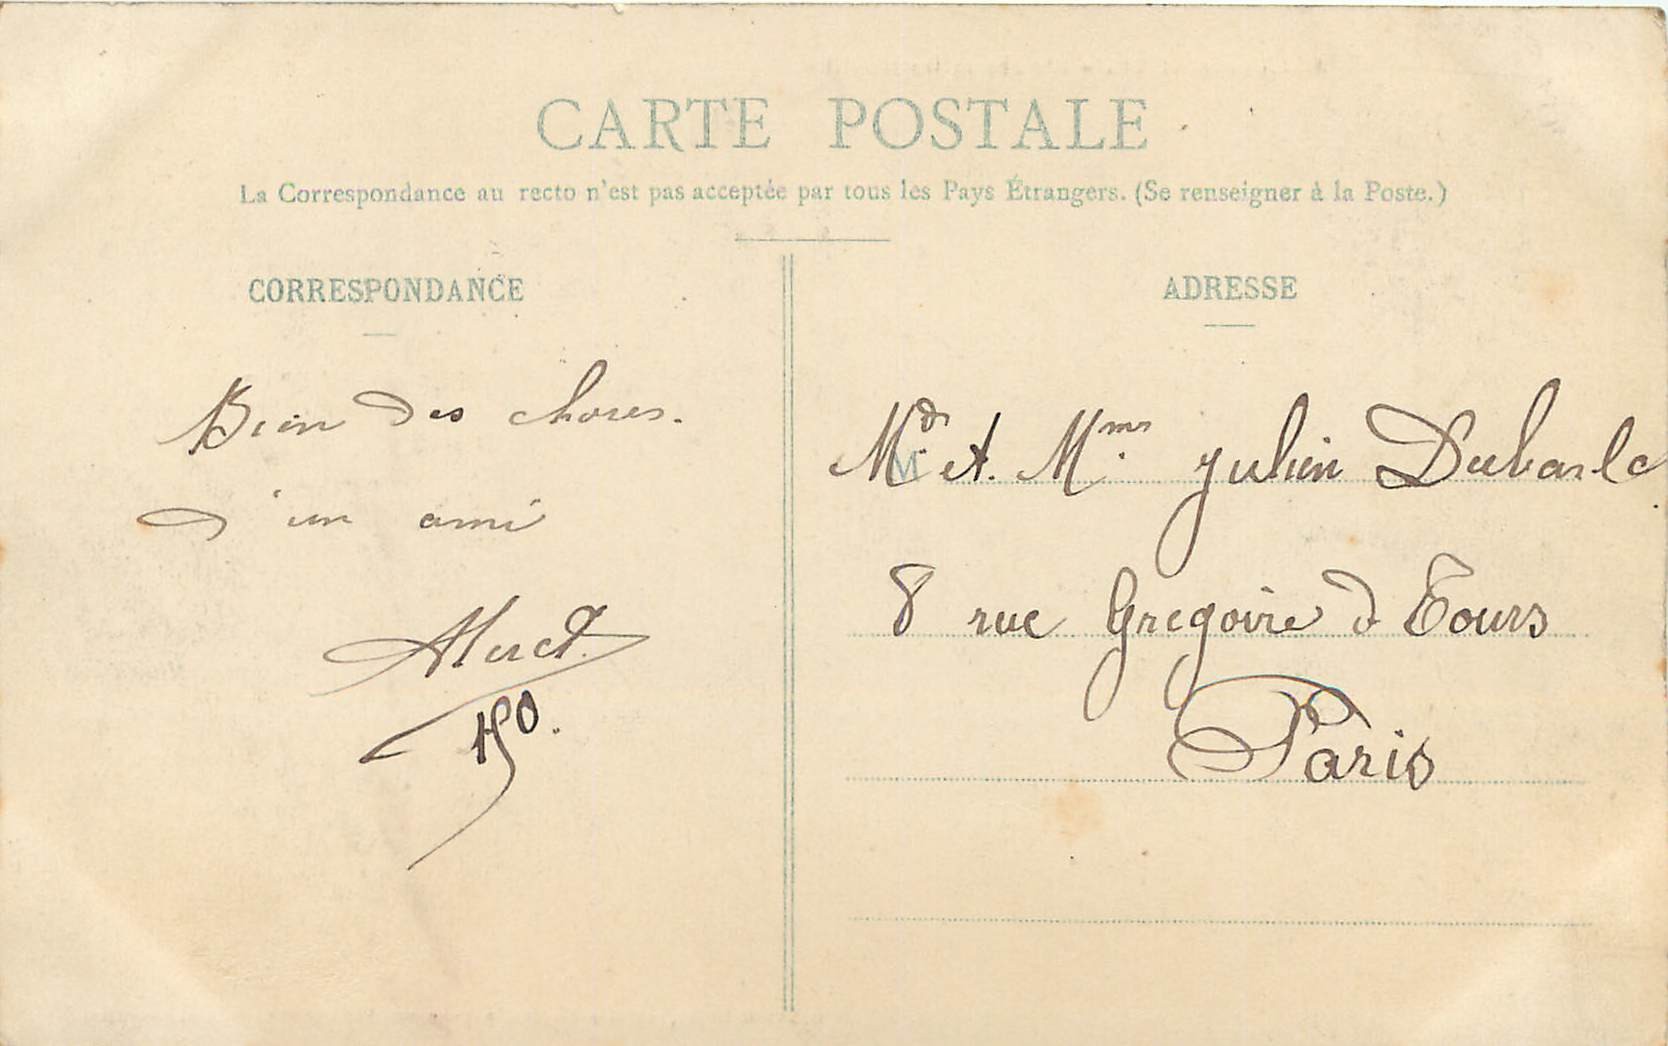 CARTE POSTALE
La Correspondance au recto n'est pas acceptée par tous les Pays Étrangers. (Se renseigner à la Poste.)
CORRESPONDANCE
Bien des choses.
d'un ami
ADRESSE
M et Mme Julien Dubarle
8 rue Gregoire d Tours
Paris